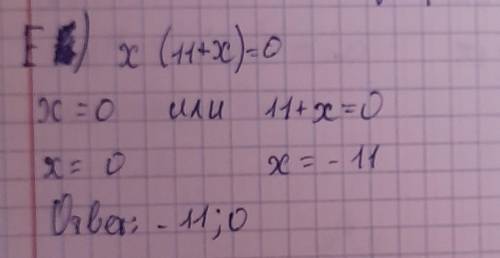 Е) x (11+x)=0
x=0 или 11+x=0
x= 0 x= -11
Ответ: -11;0